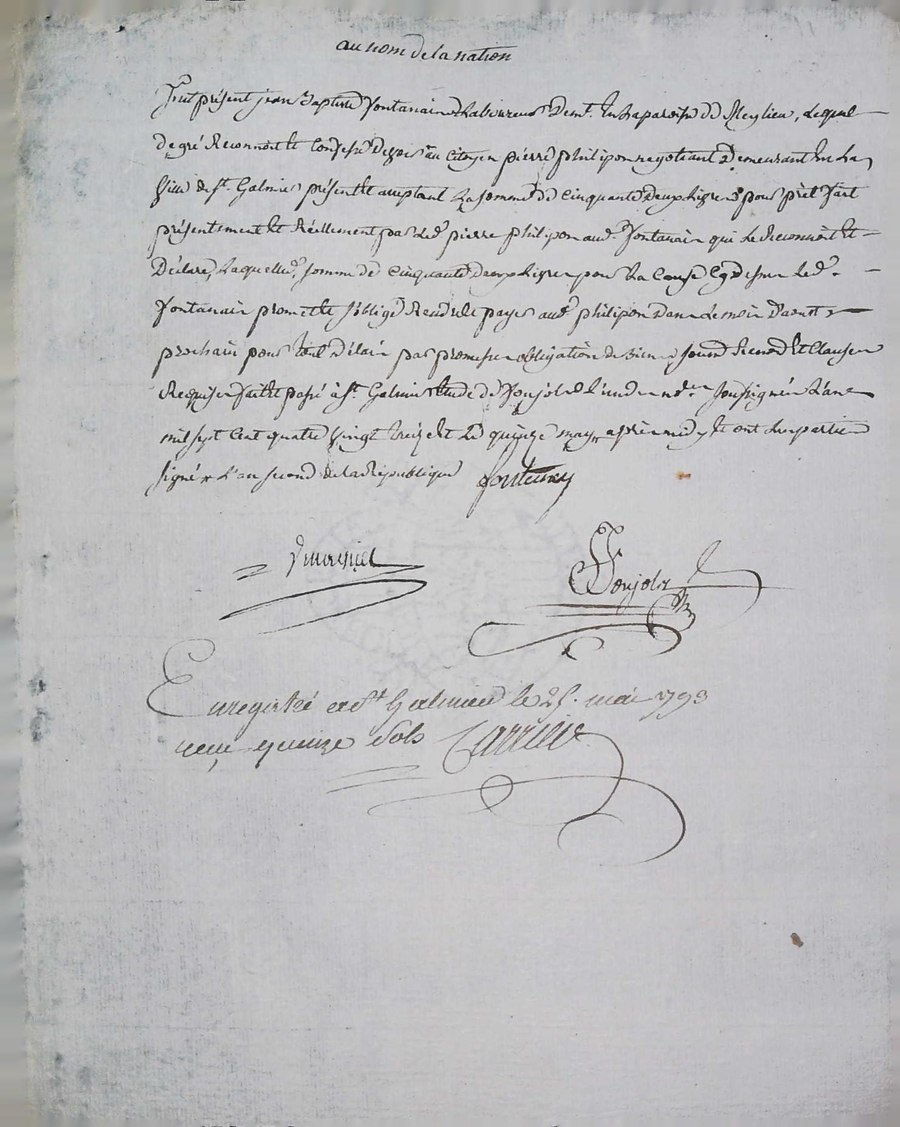 au nom de la nation
fut présent jean Baptiste fontanain Laboureur demt. En La paroisse de Meylieu, Lequel
de gré Reconnoit Et Confesse devoir au Citoyen pierre philipon negotiant Demeurant En La
ville de St. Galmier présent Et acceptant La somme de Cinquante deux Livres pour prèt fait
présentement Et Réellement par Led. pierre philipon aud. fontanain qui Le Reconnoit Et
Déclare, Laquelle somme de Cinquante deux Livres pour La Cause Cy dessus Led.
fontanain promet Et s'oblige Rendre Et payer aud. philipon dans Le mois d'aoust
prochain pour tout délais par promesse obligation de Biens, soumis Renond Et Clauses
Requises fait Et passé à St. Galmier Etude de Soujols L'un des nores. soussignés L'an
mil sept Cent quatre vingt treize Et Le quinze may, après midy Et ont Les parties
signé L'an second de la République fontaney
Soujols
Enregistré a St. Galmier le 25. mai 1793
reçu quinze sols Carrier